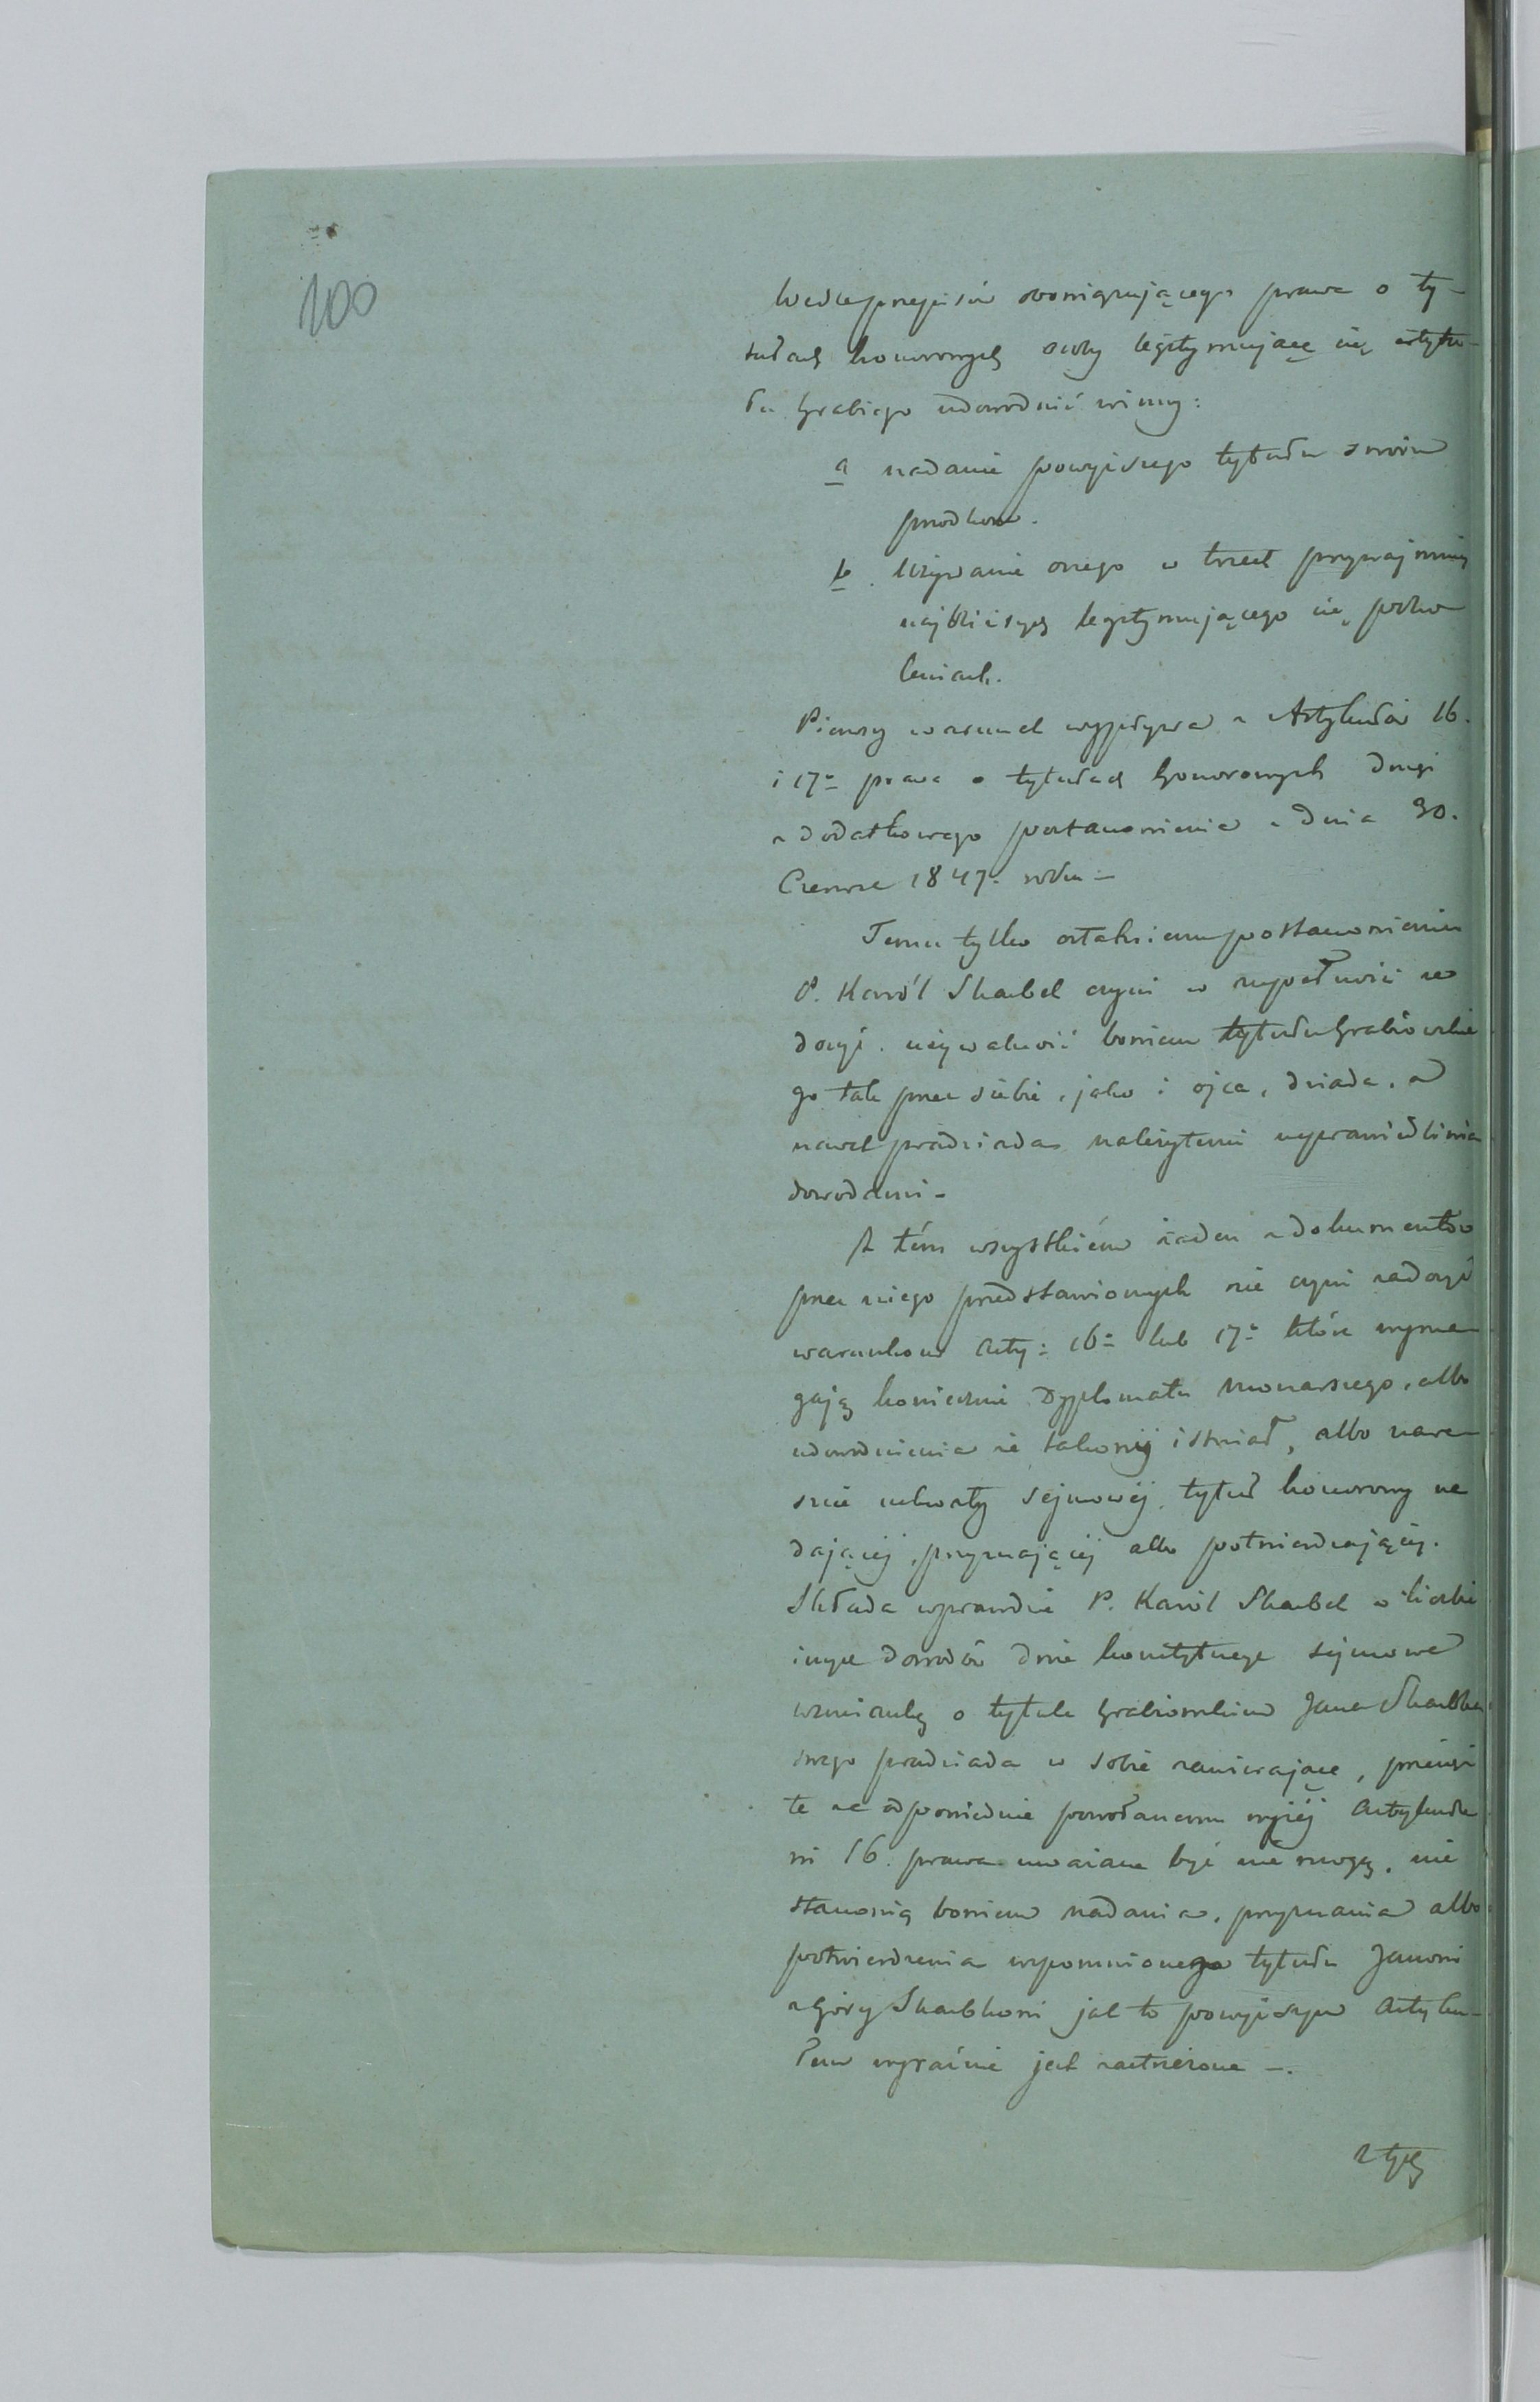 100
Wedle przepisów obowiązującego prawa o ty-
tułach honorowych osoby legitymujące się z tytu-
łu hrabiego udowodnić winny:
a nadanie powyższego tytułu swoim
przodkom.
b. Używanie onego w trzech przynajmniej
najbliższych legitymującego się poko
leniach.
Pierwszy warunek wypływa z Artykułów 16.
i 17º prawa o tytułach honorowych drugi
z dodatkowego postanowienia z dnia 30.
Czerwca 1847. roku -
Temu tylko ostatniemu postanowieniu
P. Karól Skarbek czyni w zupełności za
dosyć. używalność bowiem tytułu hrabiowskie
go tak przez siebie, jako i ojca, dziada, a
nawet pradziada należytemi usprawiedliwia
dowodami -
Z tém wszystkiém żaden z dokumentów
przez niego przedstawionych nie czyni zadosyć
warunkom Arty: 16º lub 17º które wyma
gają koniecznie Dyplomatu Monarszego, albo
udowodnienia że takowy istniał, albo nare-
szcie uchwały Sejmowéj, tytuł honorowy na
dającéj, przyznającéj albo potwierdzającéj.
Składa wprawdzie P. Karól Skarbek w liczbie
innych dowodów dwie konstytucye sejmowe
wzmiankę o tytule hrabiowskim Jana Skarbka
swego pradziada w sobie zawierające, przecież
te za odpowiednie powołanemu wyżéj Artykuło
wi 16. prawa uważane być nie mogą, nie
stanowią bowiem nadania, przyznania albo
potwierdzenia wspomnionego tytułu Janowi
z Góry Skarbkowi jak to powyższym Artyku-
łem wyraźnie jest zastrzeżone -.
Z tych